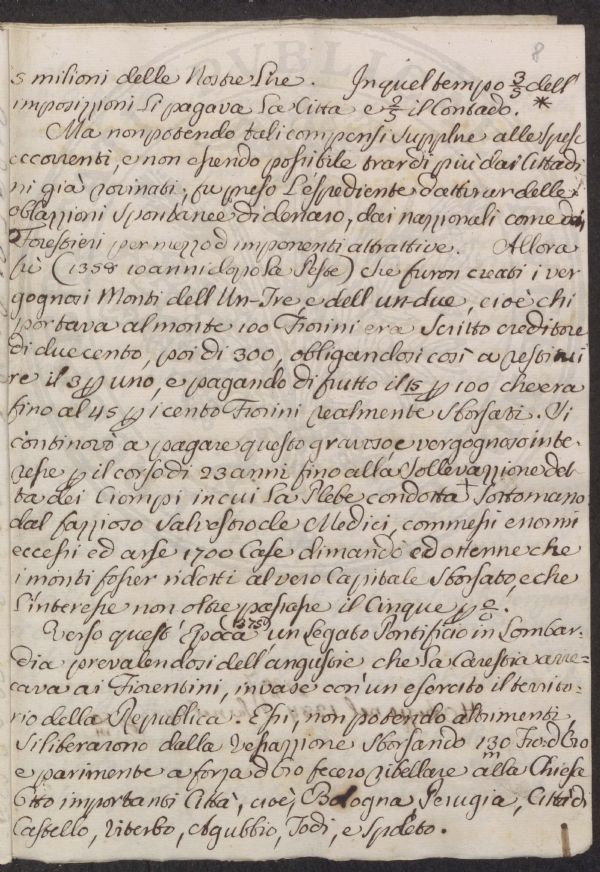 8
5 milioni delle Nostre Lire. In quel tempo 3/5 dell'
imposizioni si pagava la Città e 2/5 il Contado. *
Ma non potendo tali compensi supplire alle spese
occorrenti, e non essendo possibile trar di più dai Cittadi
ni già rovinati, fu preso l'espediente d'attirar delle
oblazzioni spontanee di denaro, dai nazzionali come dai
Forestieri per mezzo d'imponenti attrattive. Allora
fù (1358 10 anni dopo la Peste) che furon creati i ver
gognosi Monti dell'Un-Tre e dell'un-due, cioè chi
portava al monte 100 Fiorini era scritto creditore
di duecento, poi di 300, obligandosi così a restitui
re il 3 p uno, e pagando di frutto il 15 p 100 che era
fino al 45 p i cento Fiorini realmente sborsati. Si
continovò a pagare questo gravoso e vergognoso inte-
resse p il corso di 23 anni fino alla Sollevazzione det-
ta dei Ciompi in cui la Plebe condotta + Sottomano
dal fazzioso Salvestro de Medici, commessi enormi
eccessi ed arse 1700 Case dimandò ed ottenne che
i monti fosser ridotti al vero Capitale sborsato, e che
l'interesse non oltrepassasse il Cinque p %.
Verso quest'Epoca (1375) un Legato Pontificio in Lombar-
dia prevalendosi dell'angustie che la Carestia arre=
cava ai Fiorentini, invase con un esercito il territo-
rio della Republica. Essi, non potendo altrimenti,
si liberarono dalla vessazzione sborsando 130 m Fio: d'Oro
e parimente a forza d'Oro fecero ribellare alla Chiesa
Otto importanti Città, cioè Bologna Perugia, Città di
Castello, Viterbo, Agubbio, Todi, e Spoleto.